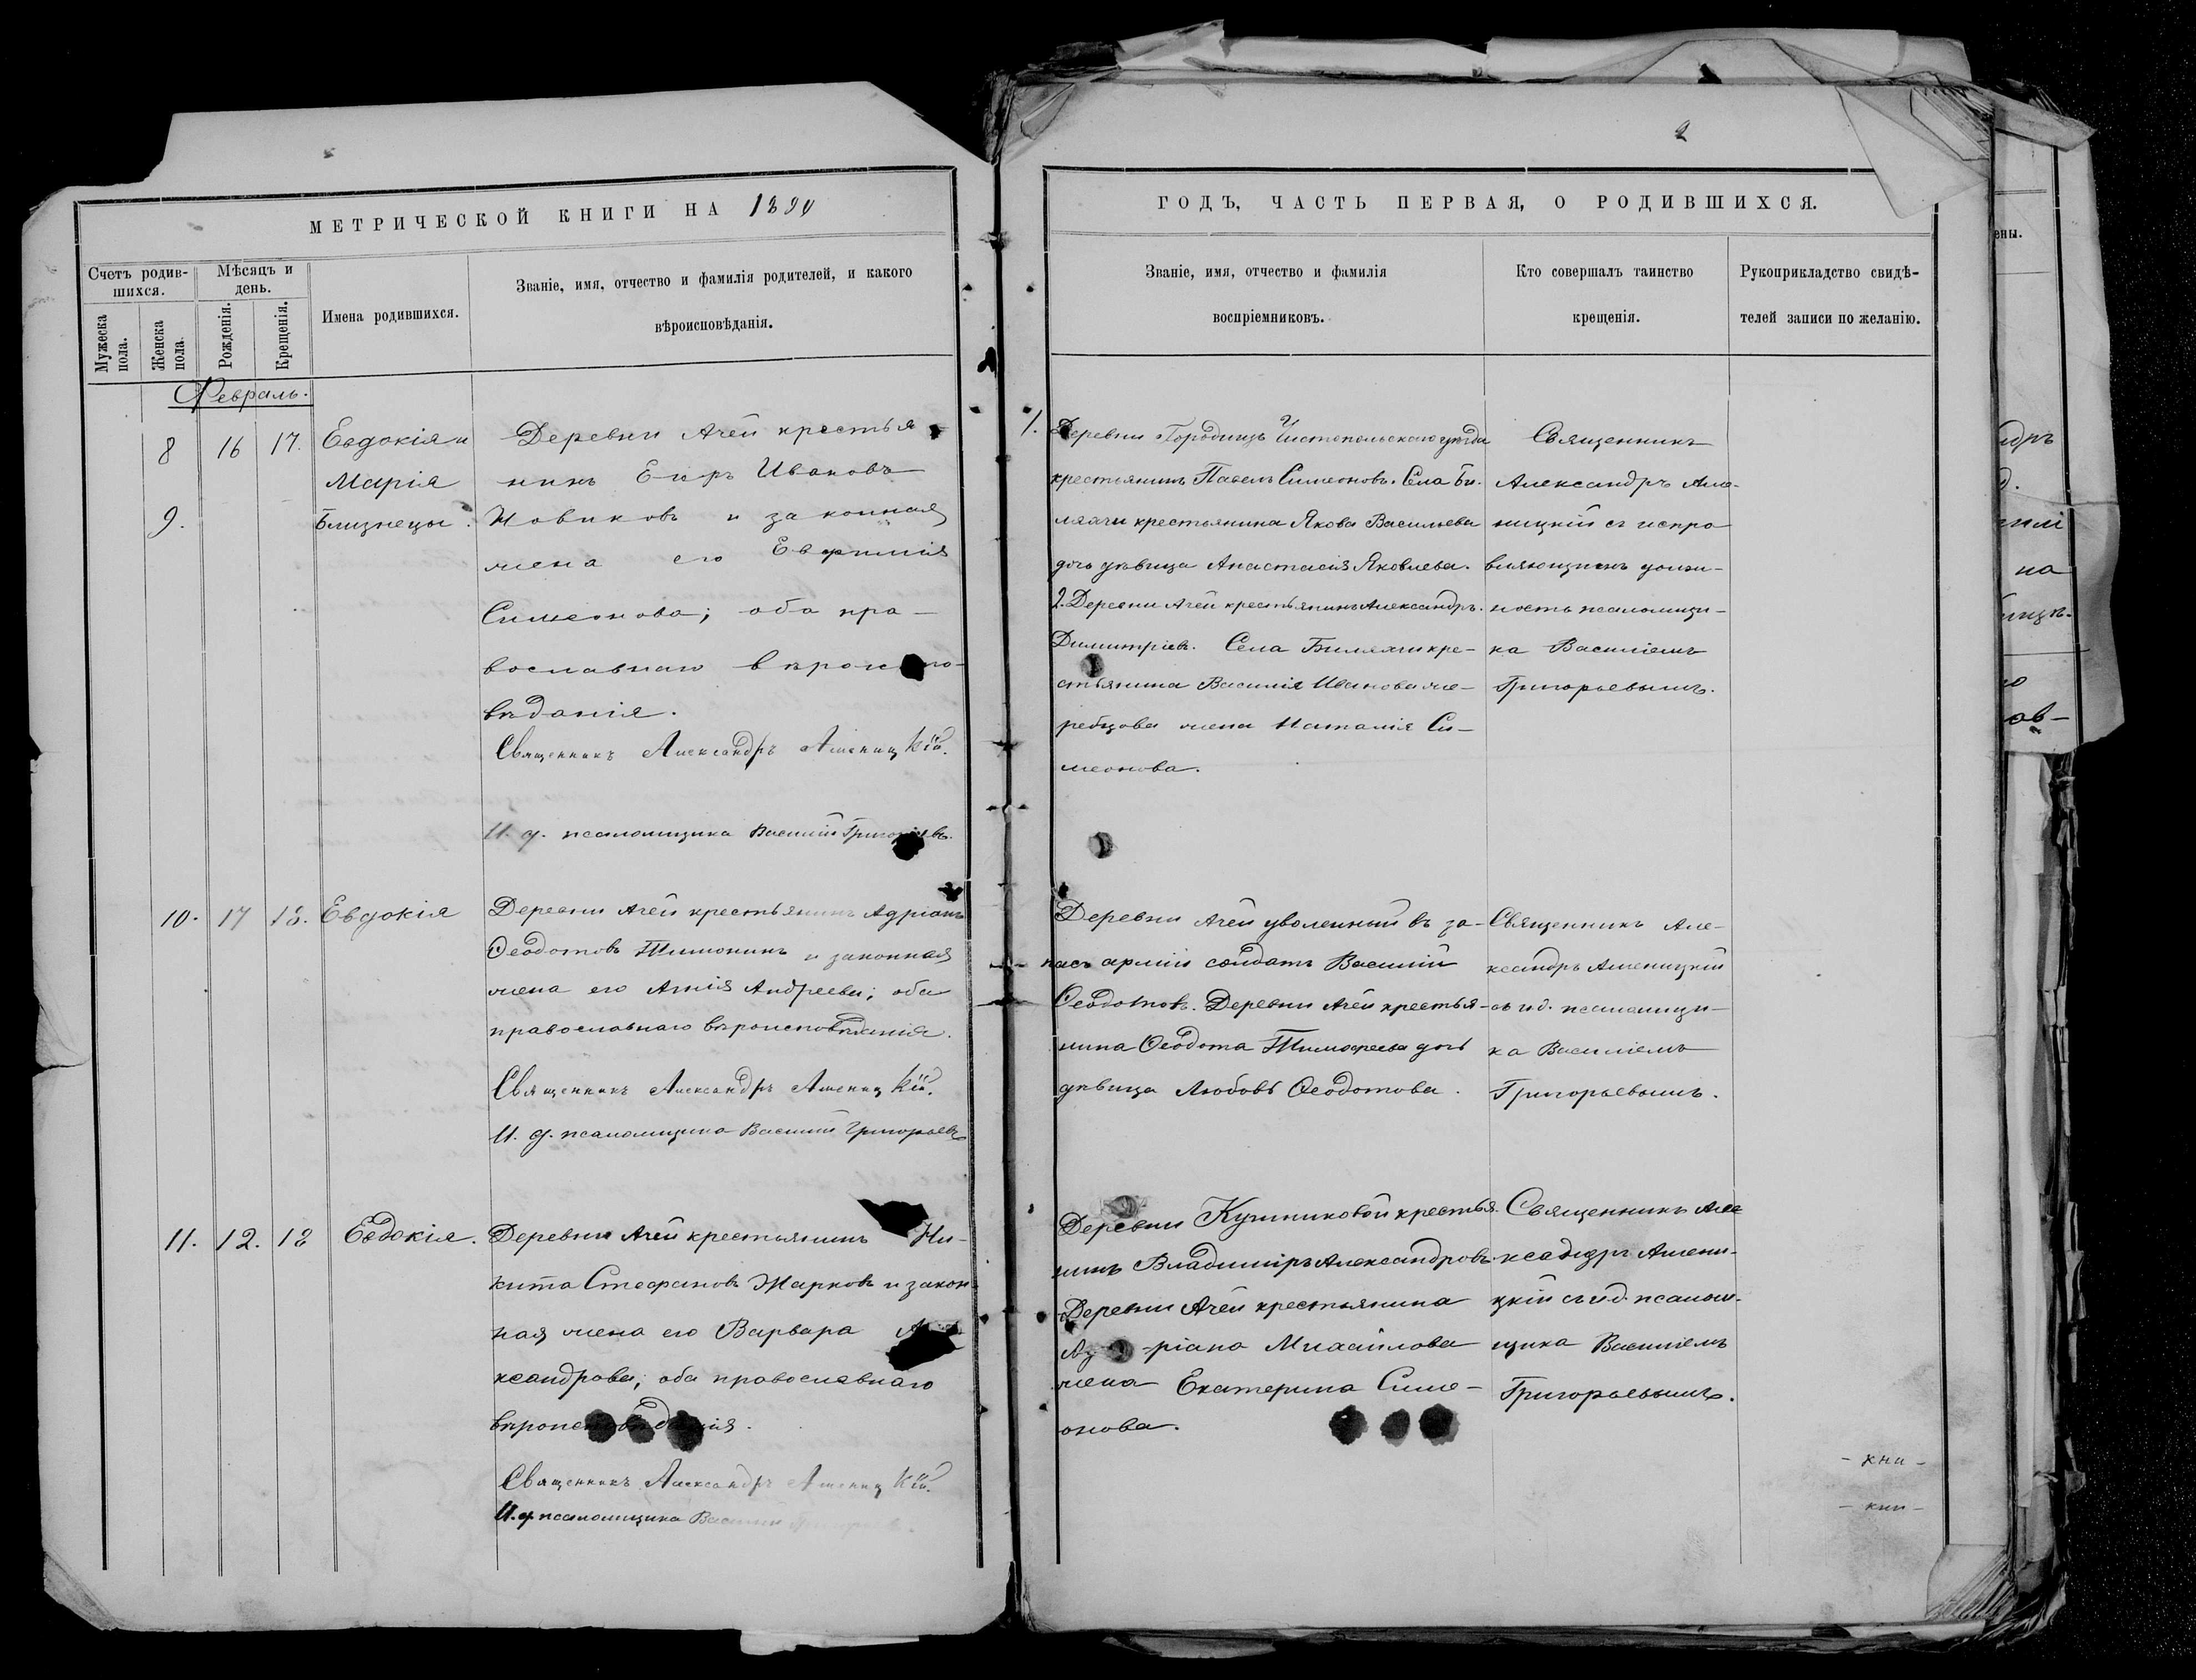 МЕТРИЧЕСКОЙ КНИГИ НА
Счетъ родив-
шихся.
Мѣсяцъ и
день.
Имена родившихся.
Званіе, имя, отчество и фамилія родителей, и какого
вѣроисповѣданія.
Мужеска
пола.
Женска
пола.
Рожденія.
Крещенія.
Февраль.
8 16 17. Евдокія и
Марія
9. Близнецы.
Деревни Ачей крестья-
нинъ Егоръ Ивановъ
Новиковъ и законная
жена его Евфимія
Симеонова; оба пра-
вославнаго вѣроиспо-
вѣданія.
Священникъ Александръ
И. д. псаломщика Василій Григорьевъ.
10. 17 18. Евдокія
Деревни Ачей крестьянинъ Адріанъ
Ѳеодотовъ Тимонинъ и законная
жена его Андреева; оба
православнаго вѣроисповѣданія.
Священникъ Александръ
И. д. псаломщика Василій Григорьевъ
11. 12. 18 Евдокія.
Деревни Ачей крестьянинъ Ни-
кита Стефановъ Жарковъ и закон-
ная жена его Варвара Але-
ксандрова; оба православнаго
вѣроисповѣданія.
Священникъ Александръ
И. д. псаломщика Василій
2
ГОДЪ, ЧАСТЬ ПЕРВАЯ, О РОДИВШИХСЯ.
Званіе, имя, отчество и фамилія
воспріемниковъ.
Кто совершалъ таинство
крещенія.
Рукоприкладство свидѣ-
телей записи по желанію.
1. Деревни Городищъ Чистопольскаго уѣзда
крестьянинъ Павелъ Симеоновъ. Села Би-
лярчи крестьянина Якова Васильева
дочь дѣвица Анастасія Яковлева.
2. Деревни Ачей крестьянинъ Александръ
Димитріевъ. Села крe-
стьянина Василія Иванова Же-
ребцова жена Наталія Си-
меонова.
Священникъ
Александръ
ницкій съ испра
вляющимъ долж-
ность псаломщи-
ка Василіемъ
Григорьевымъ.
Деревни Ачей уволенный въ за-
пасъ арміи солдатъ Василій
Ѳеодотовъ. Деревни Ачей крестья-
нина Ѳеодота Тимофеева дочь
дѣвица Любовь Ѳеодотова.
Священникъ Але-
ксандръ
съ и д. псаломщи-
ка Василіемъ
Григорьевымъ.
Деревни Кушниковой крестья-
нинъ Владиміръ Александровъ
Деревни Ачей крестьянина
Адріана Михаилова
жена Екатерина Симе-
онова.
Священникъ Але
ксандръ
цкій съ и д. псалом-
щика Василіемъ
Григорьевымъ.
- кни -
- кни -
ены.